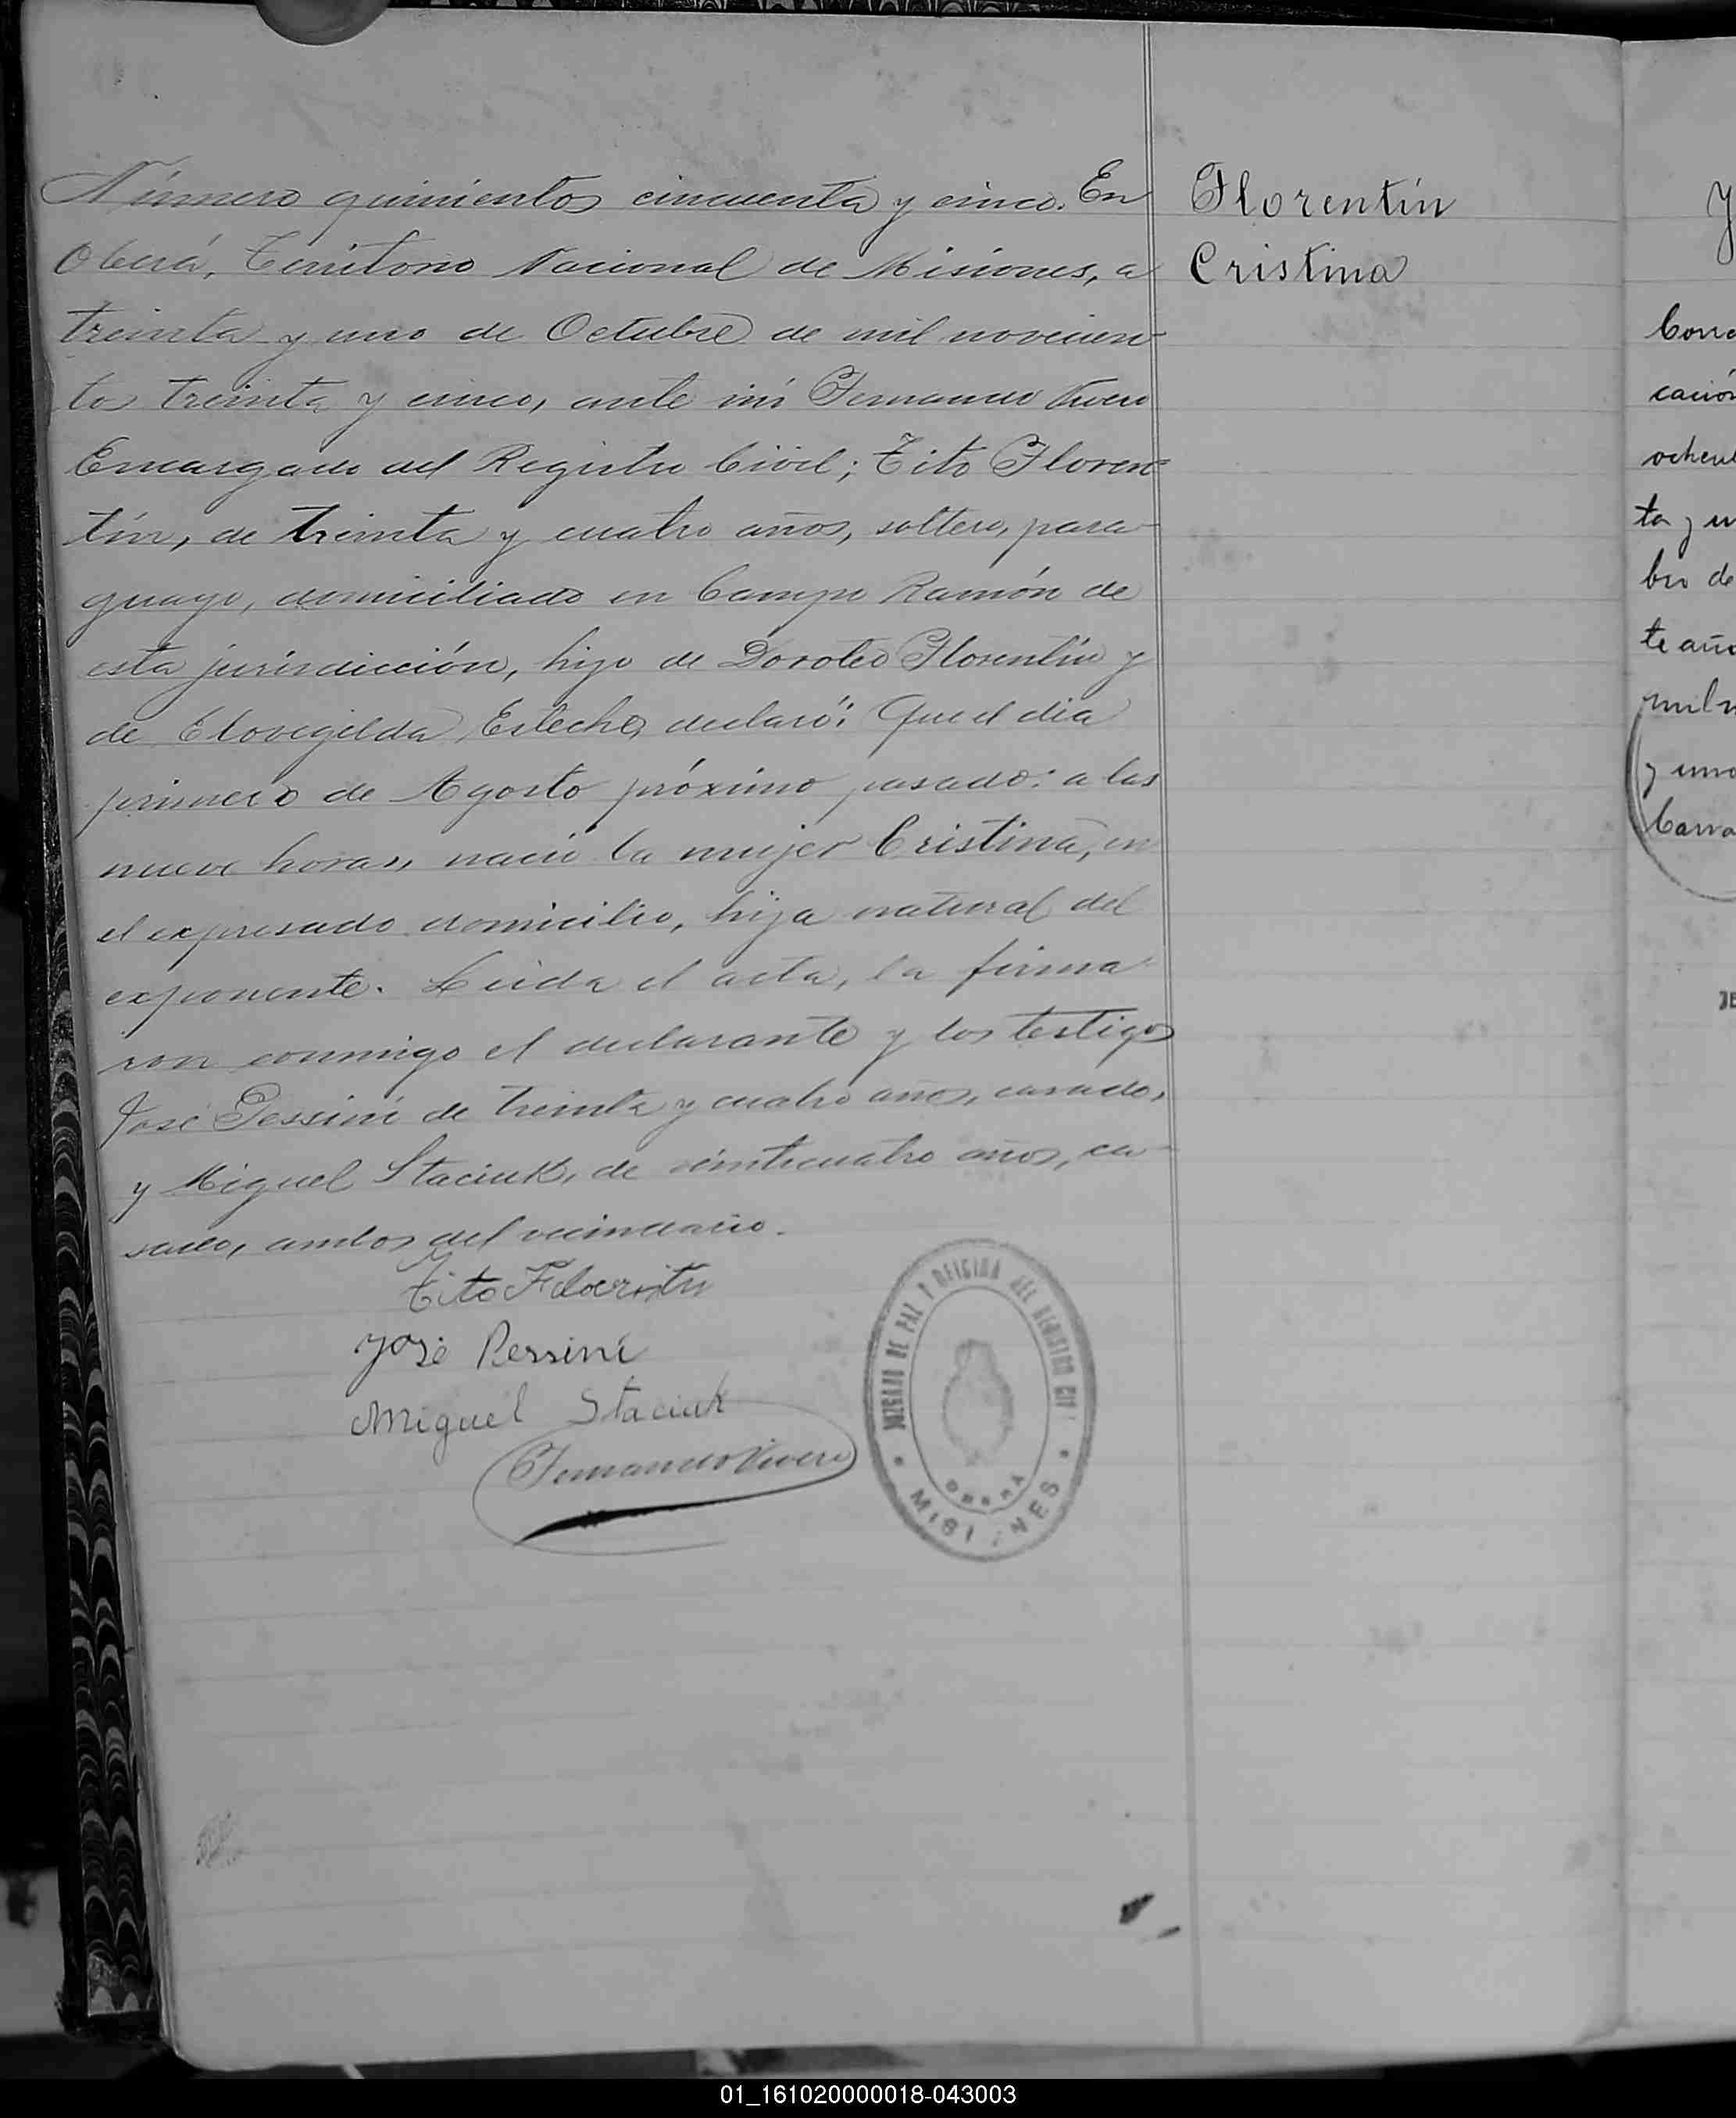 Número quinientos cincuenta y cinco. En
Oberá, Territorio Nacional de Misiones, a
treinta y uno de Octubre de mil novecien-
to treinta y cinco, ante mí Fernando Vivero
Encargado del Registro Civil; Tito Floren-
tín, de treinta y cuatro años, soltero, para-
guayo, domiciliado en Campo Ramón de
esta jurisdicción, hijo de Doroteo Florentín y
de Clovegilda Esteche, declaró: Que el día
primero de Agosto próximo pasado: a las
nueve horas, nació la mujer Cristina, en
el expresado domicilio, hija natural del
exponente. Leida el acta, la firma
ron conmigo el declarante y los testigos
José Pessini de treinta y cuatro años, casado,
y Miguel Staciuk, de veinticuatro años, ca-
sado, ambos del vecindario.
Tito Florentin
José Pessini
Miguel Staciuk
Fernando Vivero
JUZGADO DE PAZ Y OFICINA DEL REGISTRO CIVI
OBERÁ
MISI NES
Florentín
Cristina
J
Corre
cación
ochent
ta y u
bre de
te año
mil n
y uno
Carra
JE
01_161020000018-043003